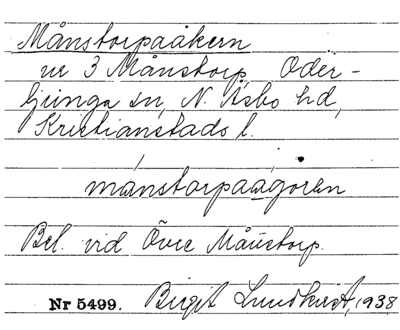 Månstorpaåkern
nr 3 Månstorp, Oder-
ljunga sn, N. Åsbo hd,
Kristianstads l.
månstorpaågoren
Bel. vid Övre Månstorp.
Nr 5499. Birgit Lundkvist, 1938